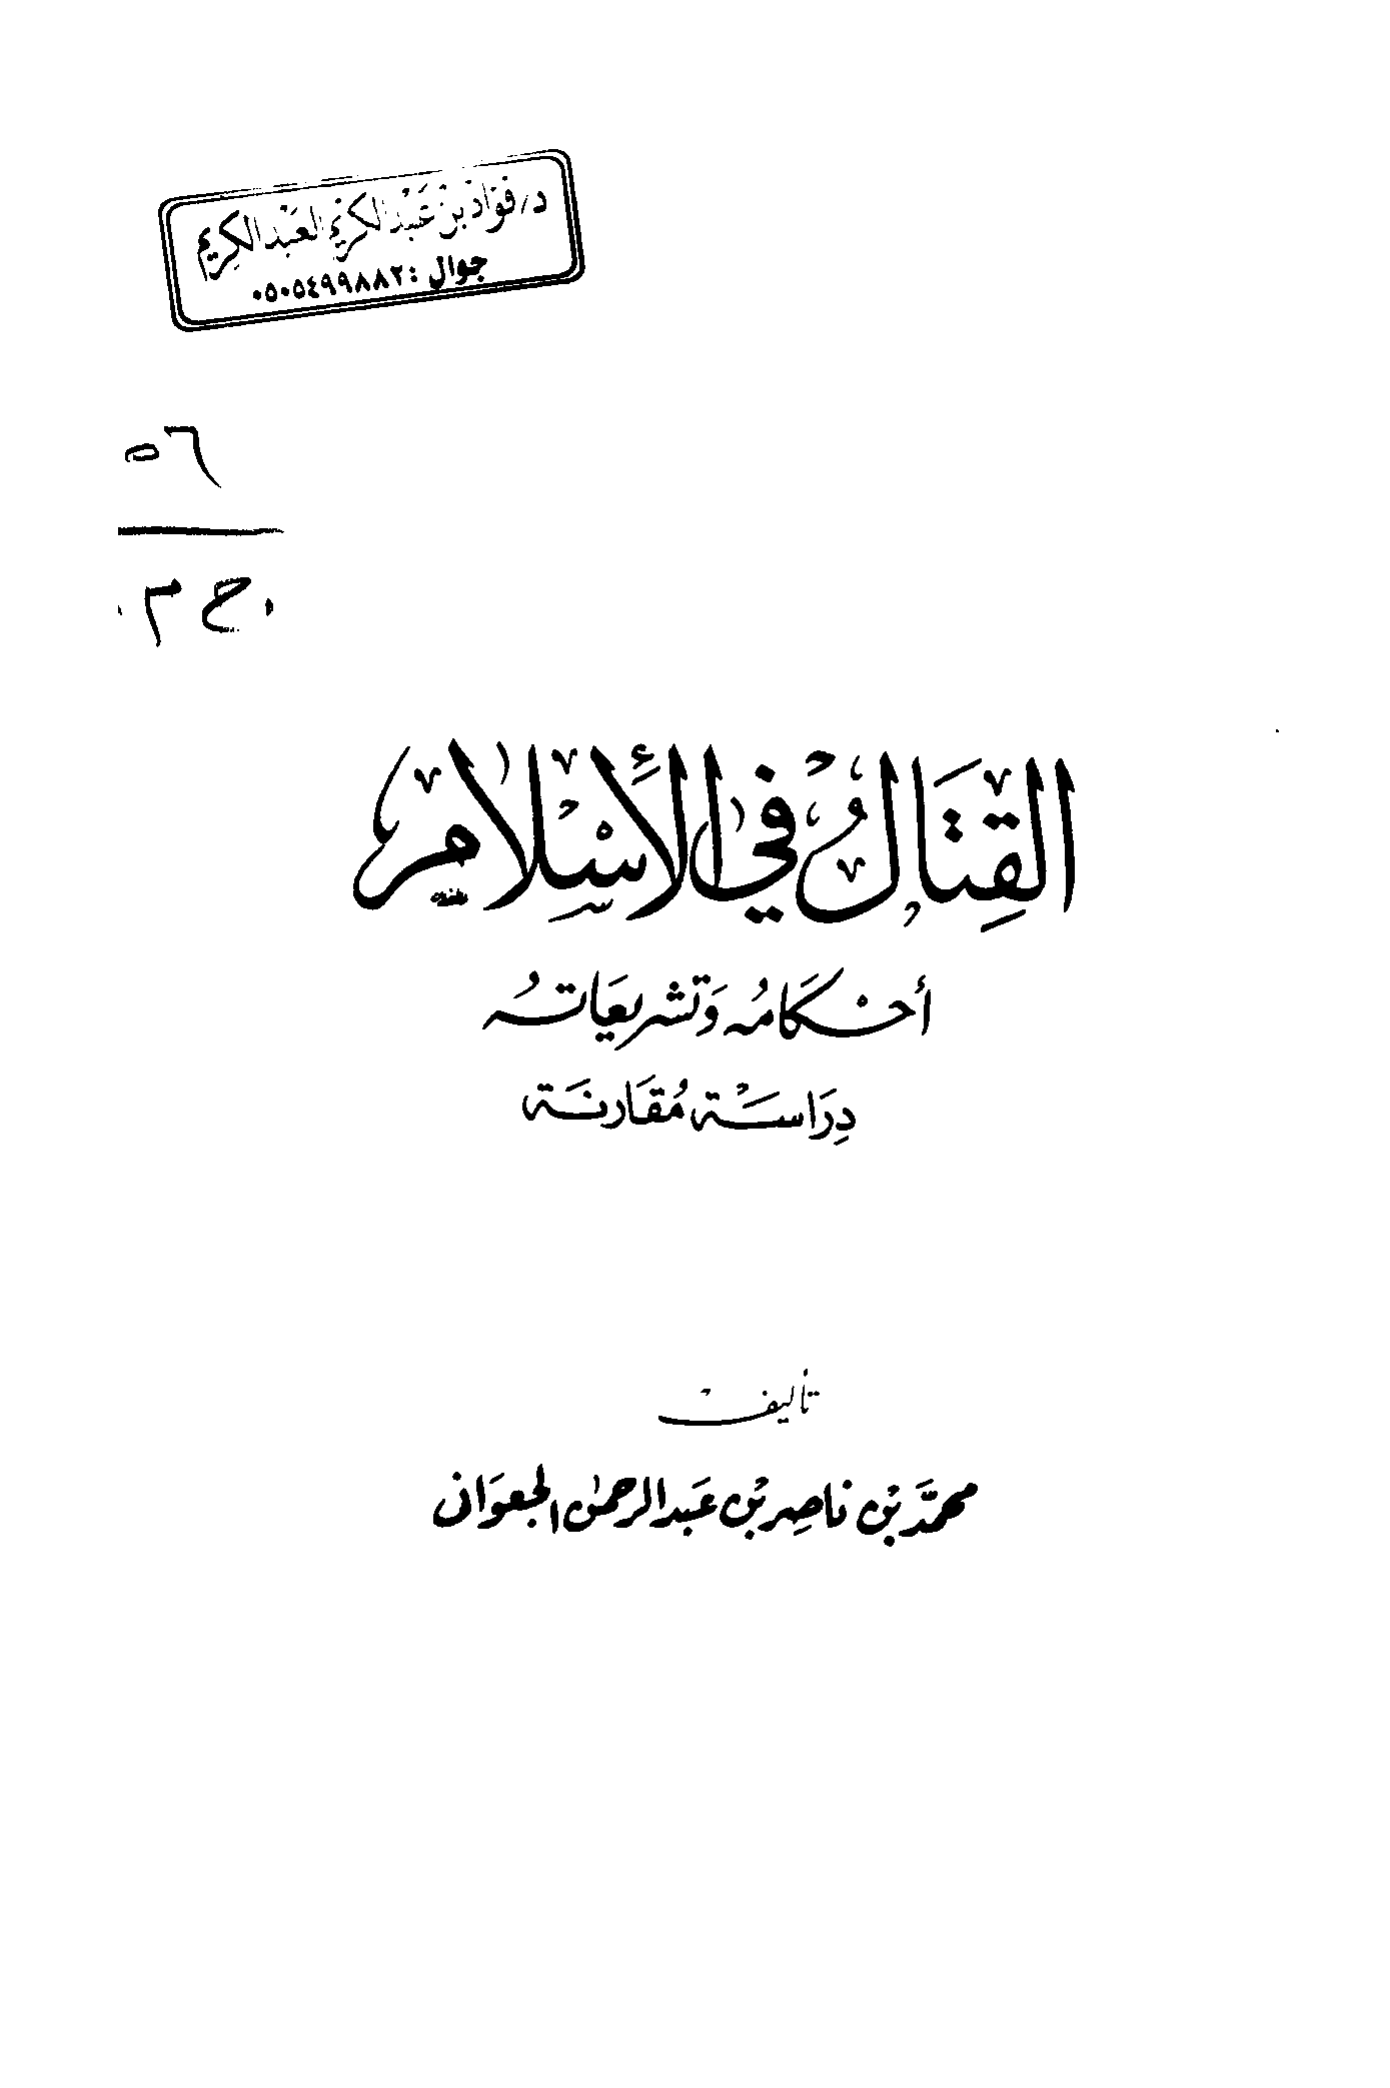 د/فؤاد بن عبد الكريم العبد الكريم
جوال : ٠٥٠٥٤٩٩٨٨٢
٥٦
ج م
القِتَالُ في الإسْلام
أحْكَامُه وَتشريعَاتهُ
دِرَاسَة مُقَارنَة
تأليف
محمَّد بْن ناصِر بْن عَبد الرحمٰن الجعوَان